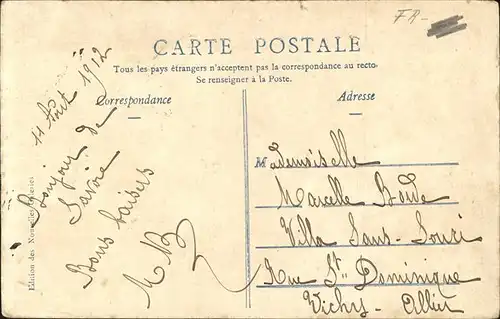 FR-
CARTE POSTALE
Tous les pays étrangers n'acceptent pas la correspondance au recto-
Se renseigner à la Poste.
Correspondance
Adresse
11 Août 1912
Bonjour de
Savoie
Bons baisers
M B
Mademoiselle
Marcelle
Villa Sans-Souci
Rue St Dominique
Vichy - Allier
Edition des Nouvelles Galeries